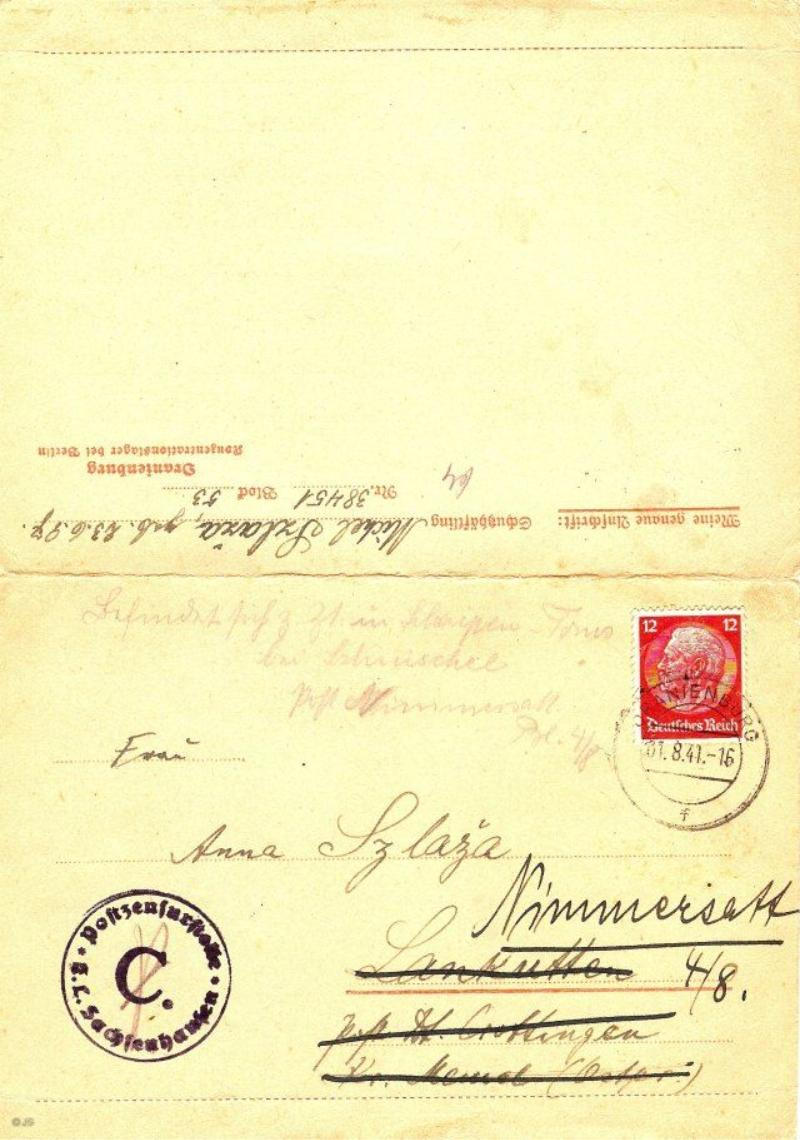 Meine genaue Anschrift:
Schutzhäftling Michel Szlaža, geb. 23.6.97.
Nr. 38451 Block 53
64
Oranienburg
Konzentrationslager bei Berlin
Befindet sich z. Zt. in
bei
Post Nimmersatt
4/8
12 12
Deutsches Reich
ORANIENBURG
01.8.41.-16
f
Frau
Anna Szlaža
Nimmersatt
Lankutten 4/8.
Post Dt. Crottingen
Kr. Memel (Ostpr.)
Postzensurstelle
C.
K.L. Sachsenhausen
©JS